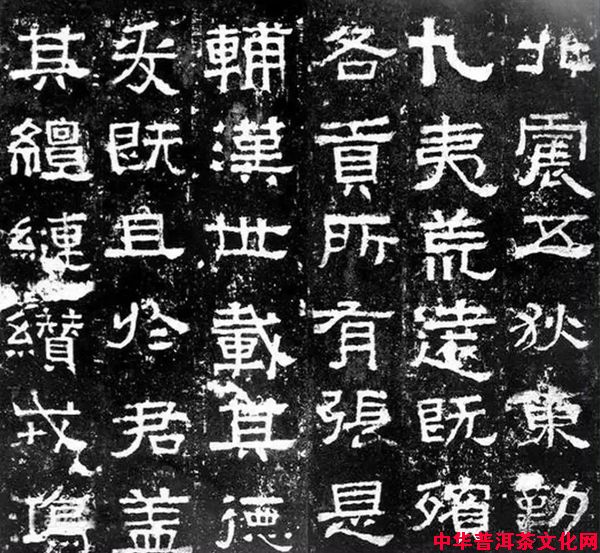 北震五狄東勤
九夷荒遠既殯
各貢所有張是
輔漢世載其德
爰既且於君盖
其繵縺纘戎鴻
中华普洱茶文化网